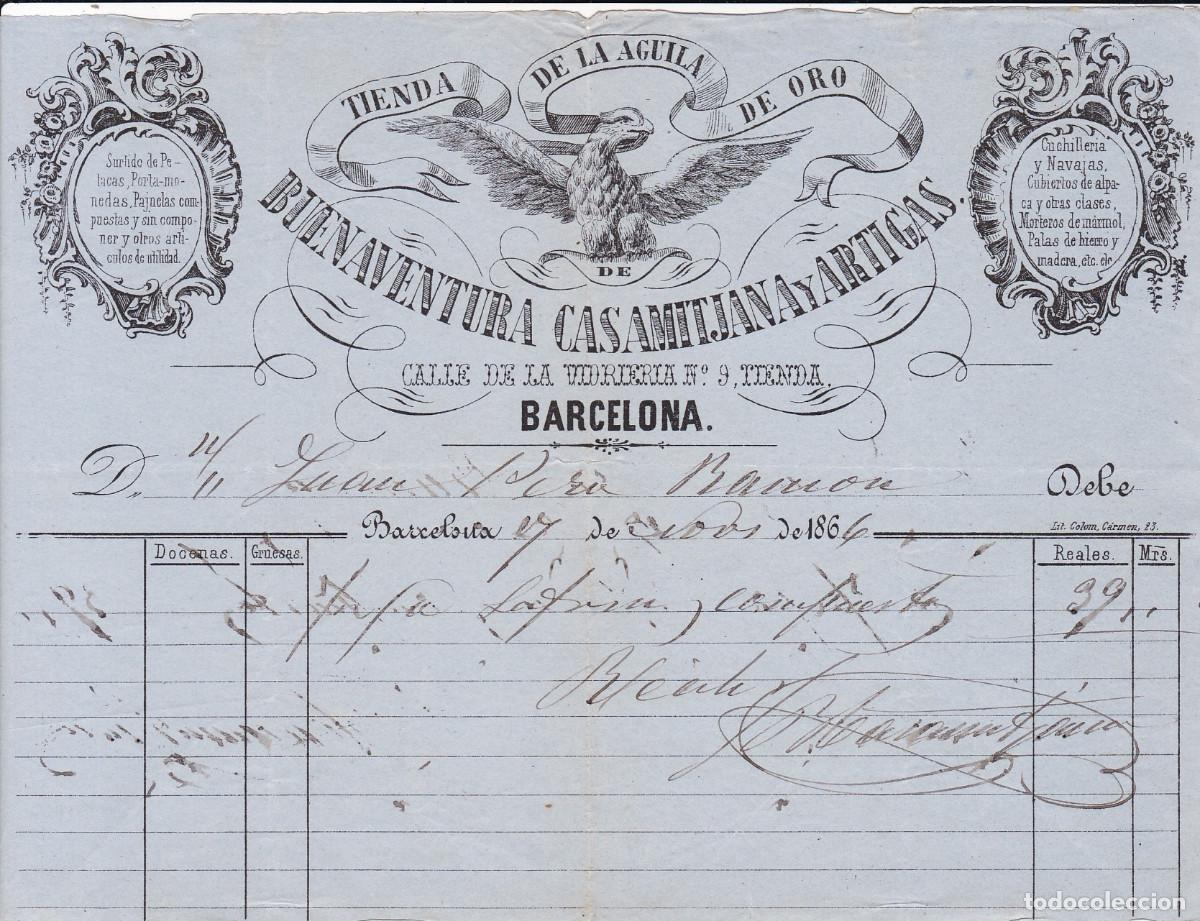 TIENDA DE LA AGUILA DE ORO
Surtido de Pe-
tacas, Porta-mo-
nedas, Pajuelas com-
puestas y sin compo-
ner y otros arti-
culos de utilidad.
Cuchilleria
y Navajas,
Cubiertos de alpa-
ca y otras clases,
Morteros de mármol,
Palas de hierro y
madera, etc. etc
DE
BUENAVENTURA CASAMITJANA Y ARTIGAS.
CALLE DE LA VIDRIERIA Nº 9, TIENDA.
BARCELONA.
D. Juan Ramon Debe
Barcelona 17 de Nov de 1866
Lit. Colom, Cármen, 23.
Docenas. Gruesas. Reales. Mrs.
compuesta 39 "
Casamitjana
todocoleccion